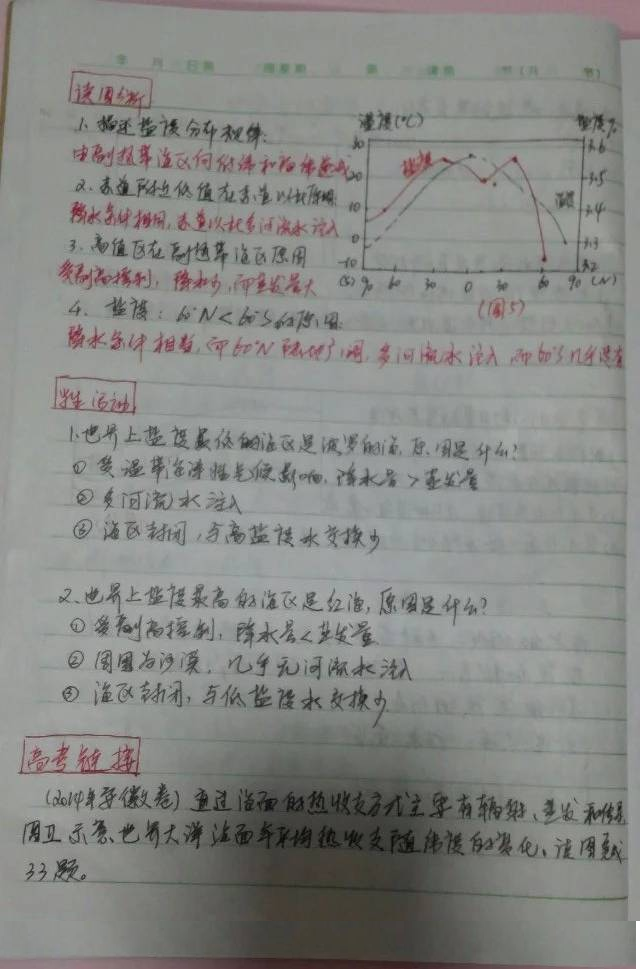 年 月 日第 周星期 第 课第 节(月 节)
读图分析
1、描述盐度分布规律:
由副热带海区向低纬和高纬递减
2、赤道附近低值在赤道以北原因:
降水条件相同,赤道以北多河流水注入
3、高值区在副热带海区原因
受副高控制,降水少,而蒸发量大
4、盐度:60°N<60°S的原因:
降水条件相当,但60°N陆地广阔,多河流水注入,而60°S几乎没有
温度(℃)
盐度%
30
20
10
0
-10
3.6
3.5
3.4
3.3
3.2
盐度
温度
(S) 90 60 30 0 30 60 90 (N)
(图5)
学生活动
1、世界上盐度最低的海区是波罗的海,原因是什么?
① 受温带海洋性气候影响,降水量>蒸发量
② 多河流水注入
③ 海区封闭,与高盐度水交换少
2、世界上盐度最高的海区是红海,原因是什么?
① 受副高控制,降水量<蒸发量
② 周围为沙漠,几乎无河流水注入
③ 海区封闭,与低盐度水交换少
高考链接
(2014年安徽卷)通过海面的热收支方式主要有辐射、蒸发和传导
图卫示意世界大洋海面年平均热收支随纬度的变化、读图完成
33题。